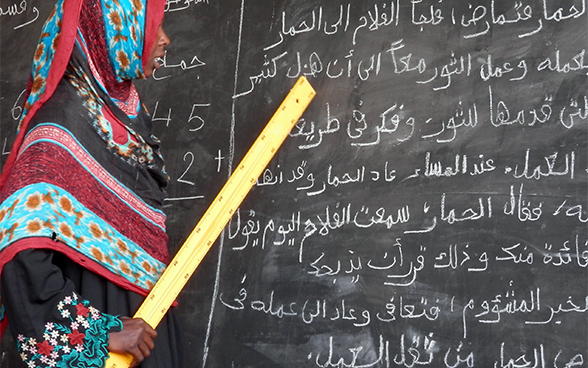 الحمار فتمارض، فلجأ الفلاح الى الحمار
لعمله وعمل الثور معاً الى أن هزل كثير
التى قدمها للثور و فكر فى طريقة
العمل. عند المساء عاد الحمار وقد انه
، فقال الحمار سمعت الفلاح اليوم يقول
فائدة منك و ذلك قرر أن يذبحك
الخبر المشؤوم، فتعافى وعاد الى عمله فى
الحمار من ثقل العمل.
جمع
6 45
2 +